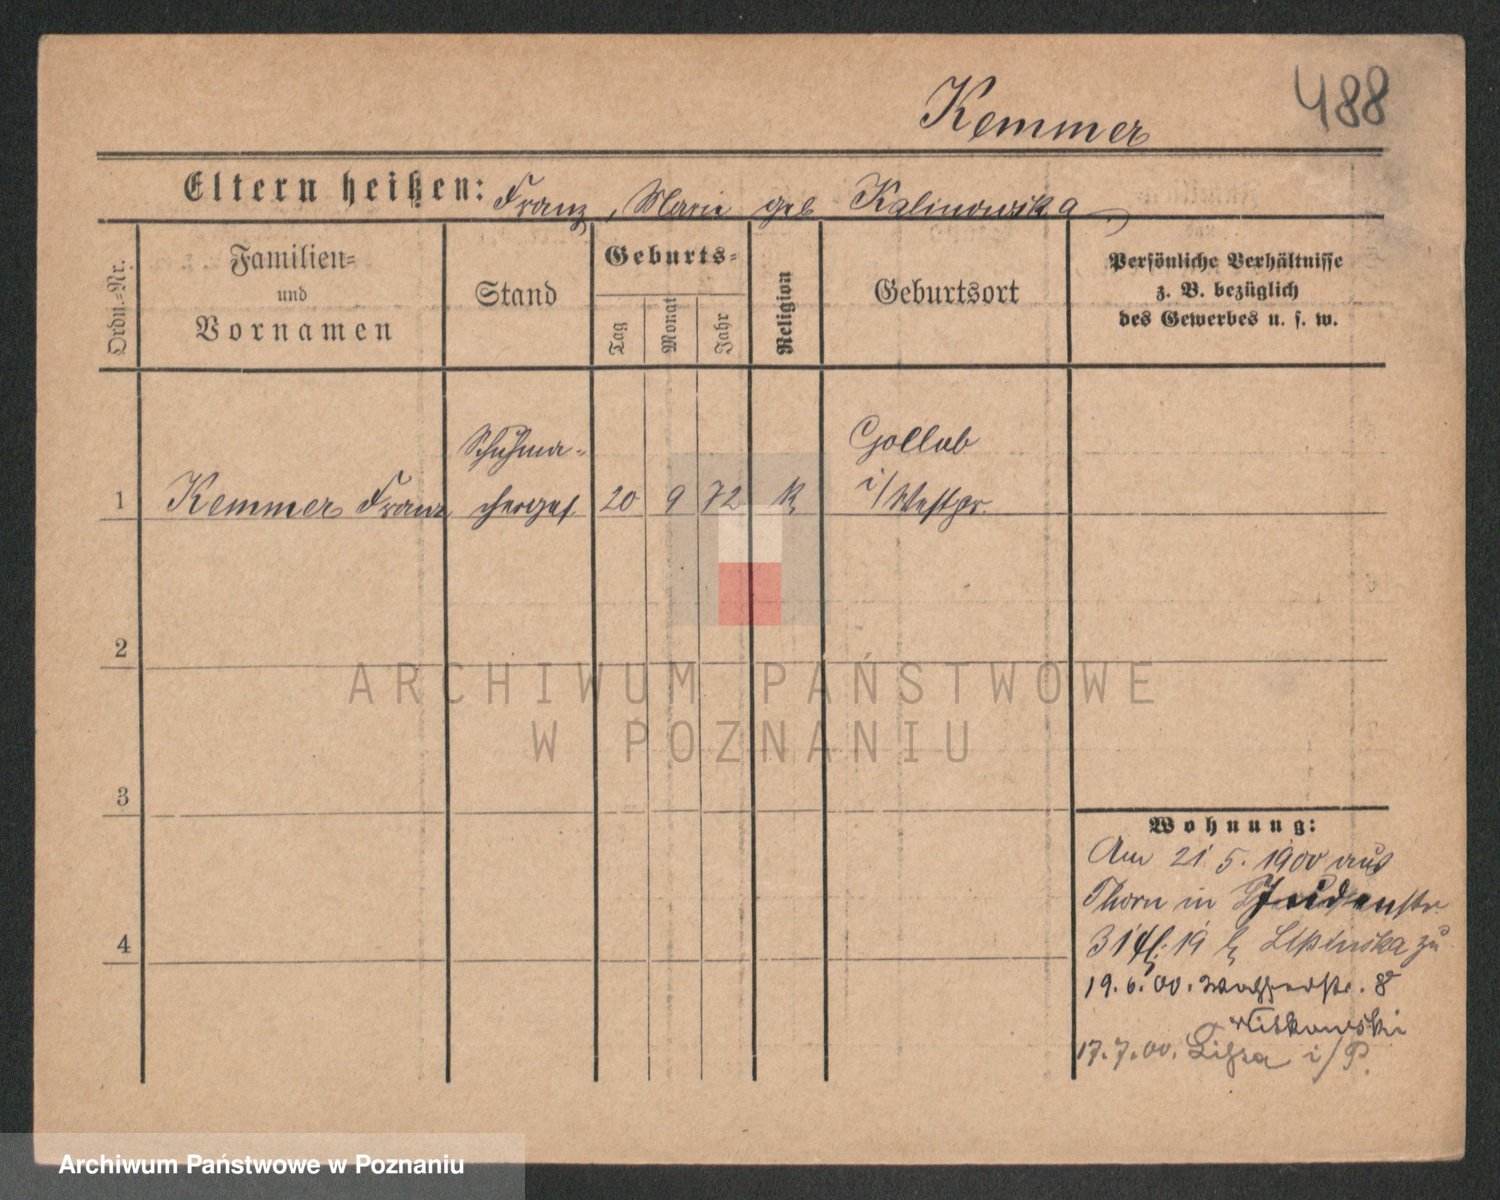 488
Kemmer
Eltern heißen: Franz, Marie geb Kalinowska
Ordn.-Nr.
Familien-
und
Vornamen
Stand
Geburts-
Tag
Monat
Jahr
Religion
Geburtsort
Persönliche Verhältnisse
z. B. bezüglich
des Gewerbes u. s. w.
1 Kemmer Franz Schuhma-
cherges. 20 9 72 k.
Gollub
i/Westpr.
2
3
4
Wohnung:
Am 21. 5. 1900 aus
Thorn in Judenstr
31 19 b. Lipinska zu
19. 6. 00. Wasserstr. 8
Witkowski
17. 7. 00. Lissa i/P.
ARCHIWUM PAŃSTWOWE
W POZNANIU
Archiwum Państwowe w Poznaniu